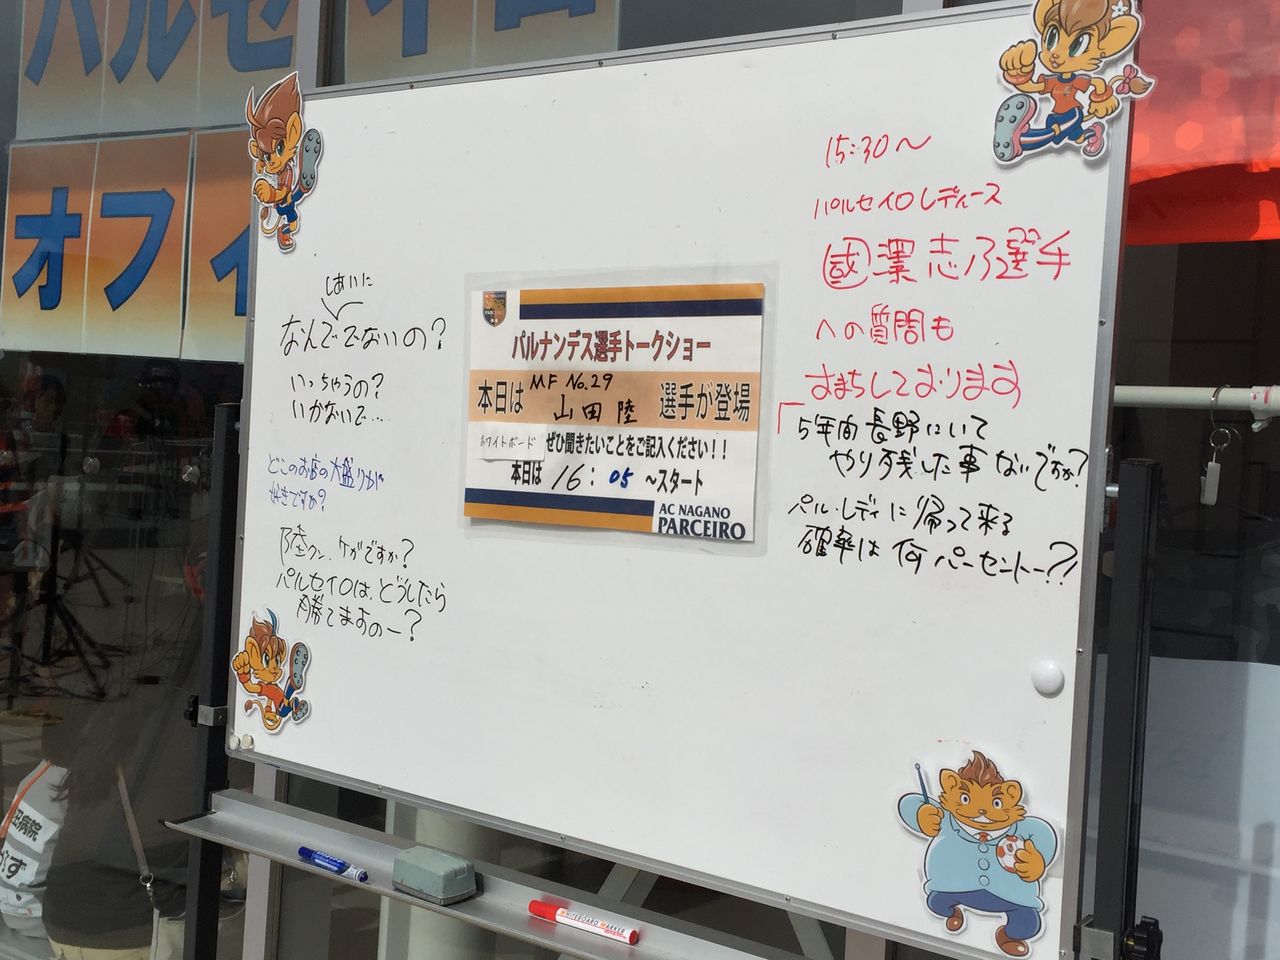 パルセイロ
オフィ
しあいに
なんで でないの?
いっちゃうの?
いかないで…
どこのお店の大盛りが
好きですか?
陸クン、ケガですか?
パルセイロは、どうしたら
勝てますのー?
AC NAGANO
PARCEIRO
パルナンデス選手トークショー
本日は MF No.29 山田 陸 選手が登場
ホワイトボード ぜひ聞きたいことをご記入ください!!
本日は 16:05 ~スタート
AC NAGANO
PARCEIRO
15:30~
パルセイロレディース
國澤志乃選手
への質問も
おまちしております
5年間長野にいて
やり残した事ないですか?
パル・レディに帰って来る
確率は何パーセントー??
WHITEBOARD MARKER
田病院